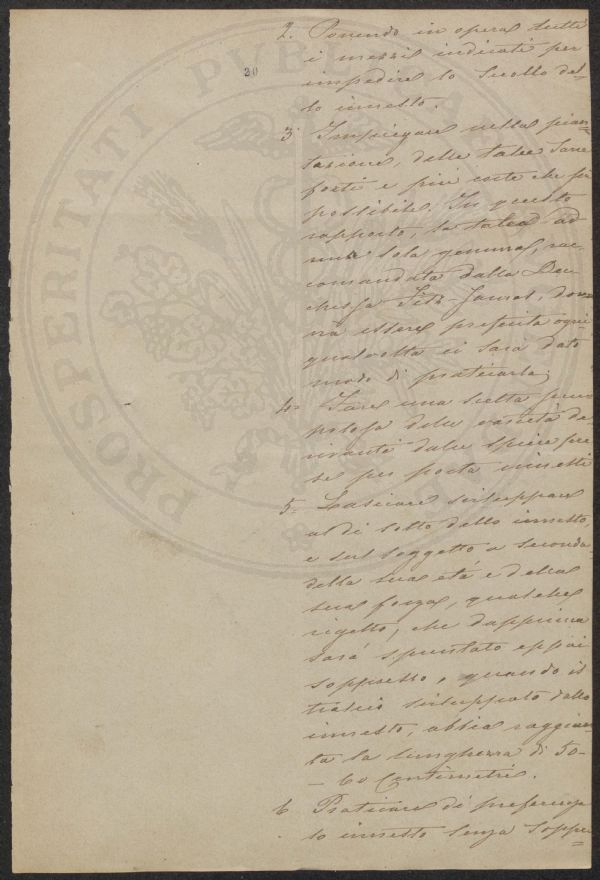 PROSPERITATI PVBLICAE
20
2. Ponendo in opera tutti
i mezzi indicati per
impedire lo scollo del=
lo innesto.
3. Impiegare nella pian=
tazione, delle talee sane
forti e più corte che sia
possibile. In questo
rapporto, la talea ad
una sola gemma, rac=
comandata dalla Du=
chessa Fitz-James, dov=
rà essere preferita ogni
qualvolta ci sarà dato
modo di praticarla;
4. Fare una scelta scru=
polosa delle varietà de=
rivanti dalle specie pre=
se per porta innesti
5. Lasciare sviluppare
al di sotto dello innesto,
e sul soggetto a seconda
della sua età e della
sua forza, qualche
rigetto, che dapprima
sarà spuntato e poi
soppresso, quando il
tralcio sviluppato dallo
innesto, abbia raggiun=
ta la lunghezza di 50-
- 60 Centimetri.
6. Praticare di preferenza
lo innesto senza soppri=